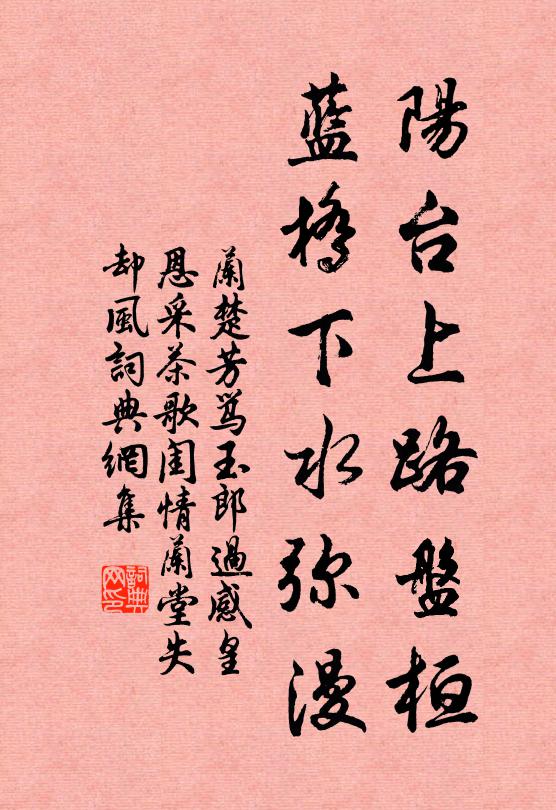 陽台上路盤桓
藍橋下水弥漫
蘭楚芳駡玉郎過感皇
恩采茶歌闺情蘭堂失
却風詞典網集
詞典
网印